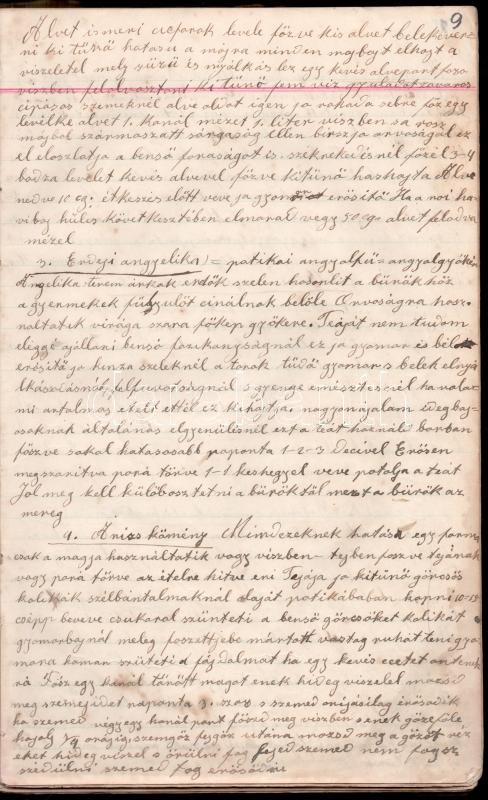 9
Alvet ismeri csaparak levele főzve kis alvet belekever-
ni ki tűnő hatasu a májra minden májbajt elhajt a
vizeletel mely sürü és nyálkás lez egy kevés alveport
viszben felolvasztani kitűnő szem víz gyuladt zavaros
cipásos szemeknél alve oldat igen jo rohai a sebre főz egy
levélke alvet 1. Kanál mézet 1. liter viszben sa rosz
májbol származatt sárgaság ellen birs ja orvoságal ez
el eloszlatja a benső foraságot is. székrekedésnél főzél 3-4
bodza levelet kevés alvevel főzve kitünő hashajto Alve
nedve 10 cg. étkezés előtt veve ja gyomor erősitő Ha a noi ha-
vi baj hüles következtében elmarad vegy 50 cg. alvet feladva
mézel
3. Erdeji angyelika) = patikai angyalfü = angyalgyökér
Angelika terem árkak erdők szelen hasonlit a bürök höz
a gyermekek fujulót cinálnak belőle Orvoságra hasz-
náltatik virága szara főkep gyökere. Teáját nem tudom
eléggé ajállani benső fazukanyságnál ez ja gyomar és bél
erősitő ja hinza szeleknél a torok tüdő gyomar s belek elnyá
lkásodásnál, felfuvorságnál s gyenge emésztésnél ha vala-
mi artalmas eteit ettél ez kihajtja. nagyon ajálam ideg baj-
osoknak általános elgyengülésnél ezt a teát használd borban
főszve sokal hatasosabb naponta 1-2-3 decivel Erősen
megszaritva pora törve 1-1 késhegyel veve potolja a teát
Jol meg kell külöbosztetni a büröktől mert a bürök az
mereg
4. Ánizs kömény Mindezeknek hatása egy forma
csak a magja használtatik vagy viszben - tejben foszve tejának
vagy pora törve az ételre hitve eni Teája ja kitünő görcsös
kolikák szélbántalmaknál olaját patikábaban kapni 10-15
csepp beveve csukoral szünteti a benső görcsöket kolikát
gyomorbajnál meleg foszettjebe mártott vastag ruhát teni gya-
mora hamar szünteti a fájdalmat ha egy kevés ecetet
rá Fősz egy kanál törött magot enek hideg vizelel mozsd
meg szemeidet naponta 3. szor s szemed onijásilag erősödik
ha szemed végy egy kanál port főzd meg viszben s anek gőzefole
hajolj 1/4 orajig szemgőz fejgőz utána mozsd meg a gőzölt részeket
hideg viszel s örülni fog fejed szemed nem fog sz
szédülni szemed fog erősödni